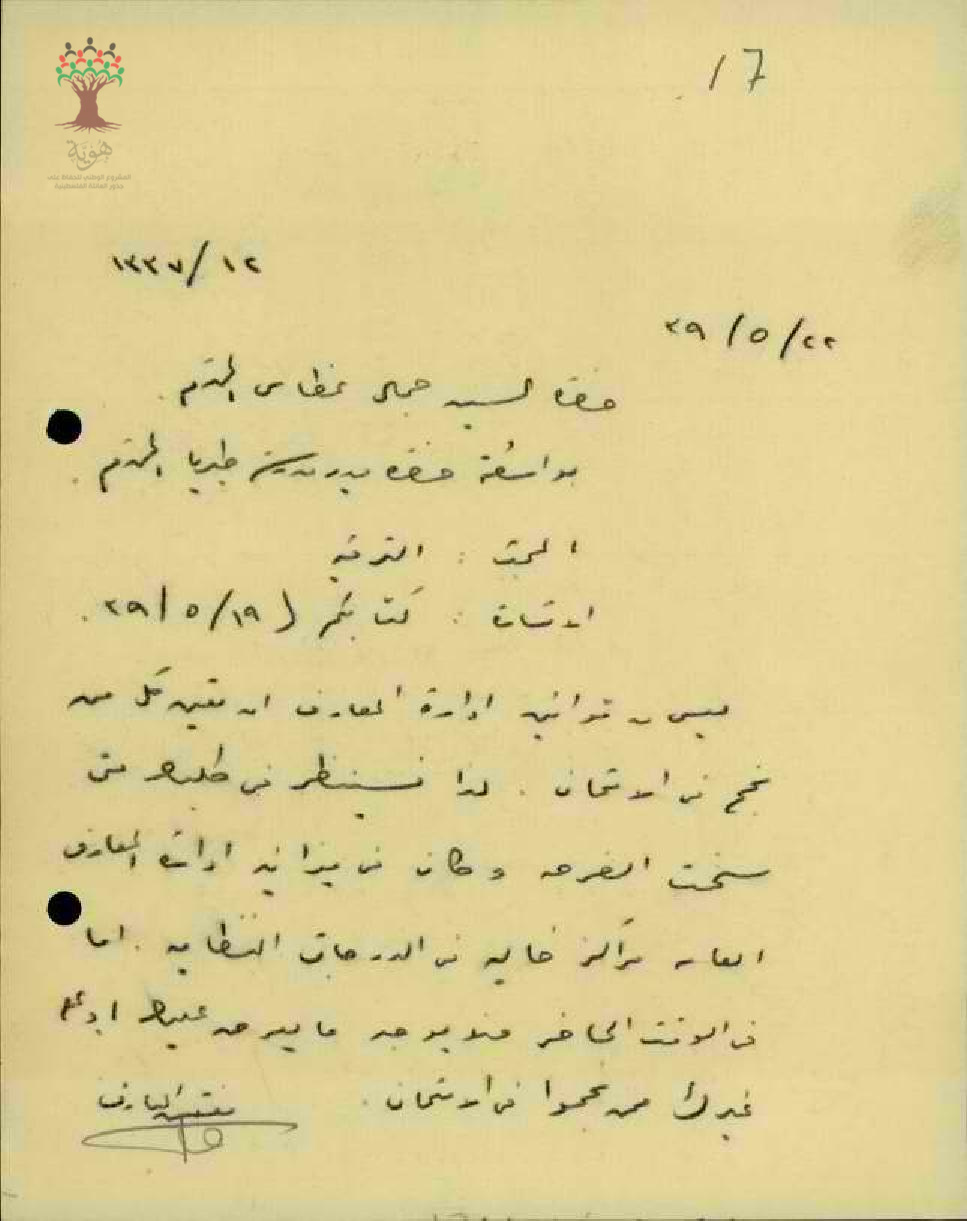 17
هوية
المشروع الوطني للحفاظ على
جذور العائلة الفلسطينية
١٢/ ١٣٣٧
٢٢/ ٥/ ٣٩
حضرة السيد جمال عطا المحترم
بواسطة حضرة مدير مدرسة طبريا المحترم.
المبحث : الترقيه
الاشارة : كتابكم (١٩/ ٥/ ٣٩).
ليس من قوانين ادارة المعارف ان تعين كل من
نجح في الامتحان. لذا فسينظر في طلبك متى
سنحت الفرصه وكان في ميزانية ادارة المعارف
العامه مراكز خاليه في الدرجات النظاميه. اما
في الوقت الحاضر فلا يوجد ما يدعو
غيرك ممن نجحوا في الامتحان.
مفتش المعارف